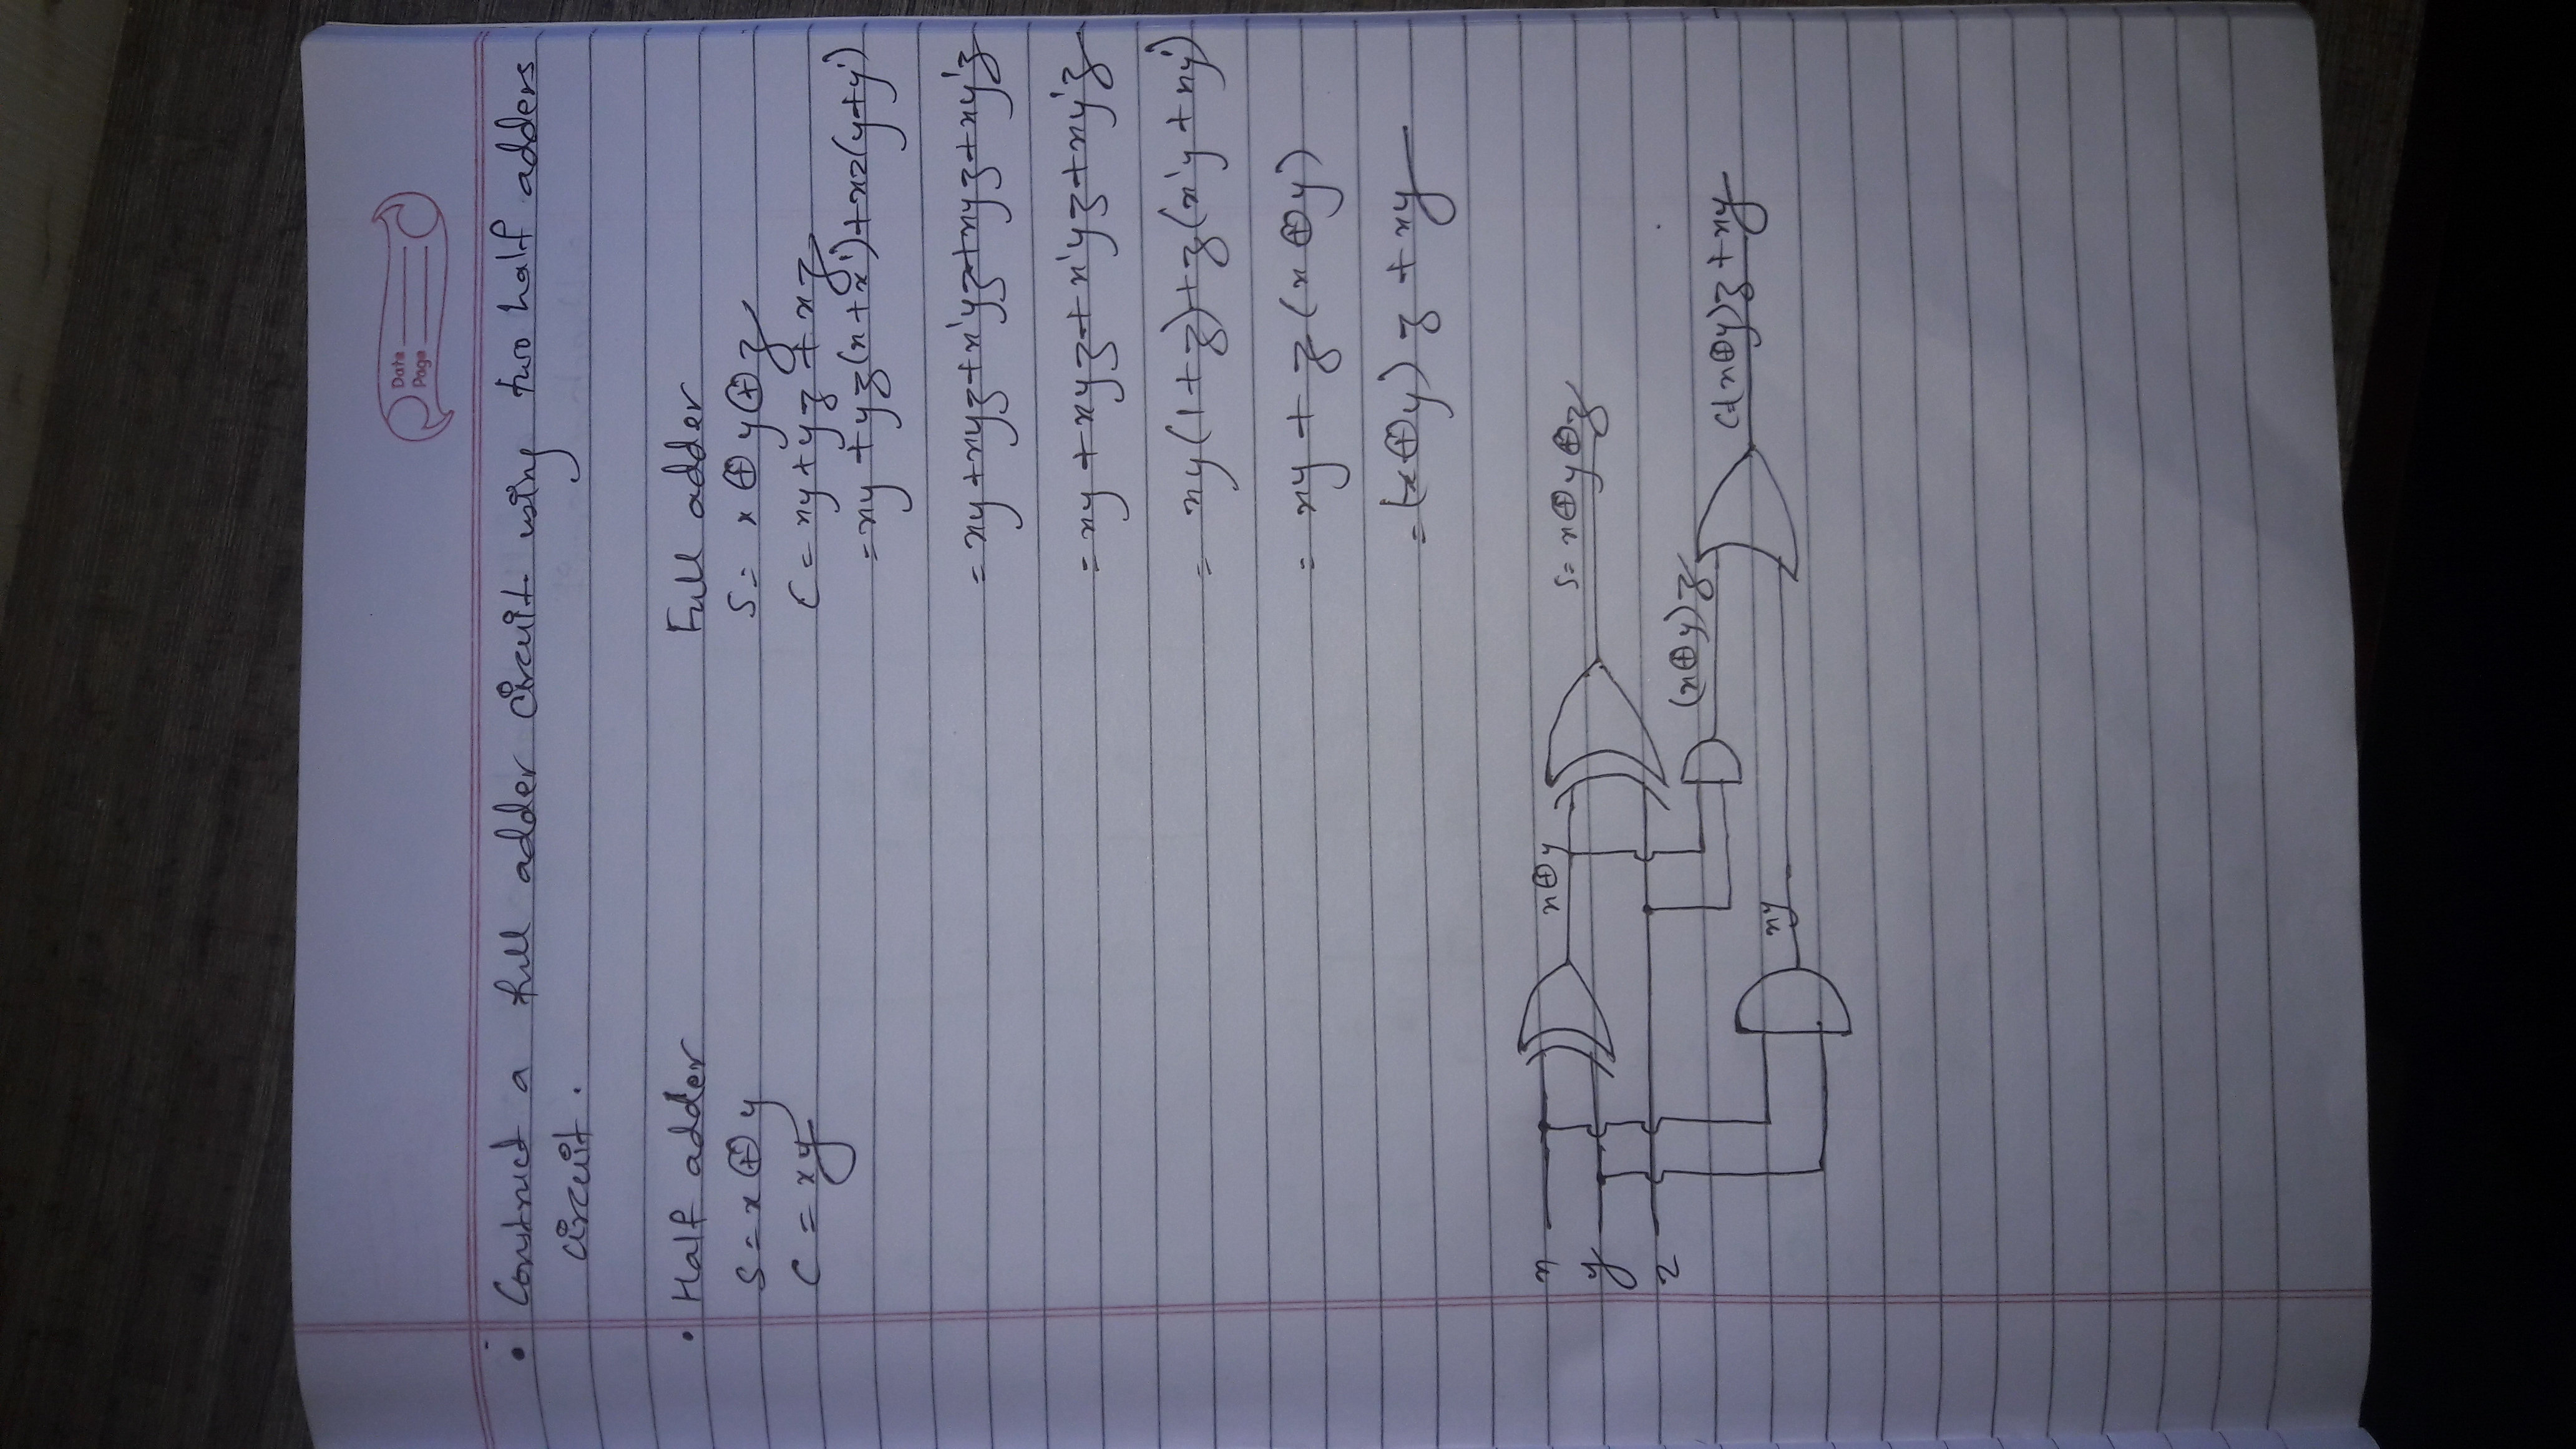 Date
Page
• Construct a full adder circuit using two half adders
circuit.
• Half adder
S = x⊕y
C = xy
Full adder
S = x⊕y⊕z
C = xy+yz+xz
= xy+yz(x+x')+xz(y+y')
= xy+xyz+x'yz+xyz+xy'z
= xy+xyz+x'yz+xy'z
= xy(1+z)+z(x'y+xy')
= xy+z(x⊕y)
= (x⊕y)z+xy
x
y
z
x⊕y
S = x⊕y⊕z
(x⊕y)z
xy
(x⊕y)z+xy